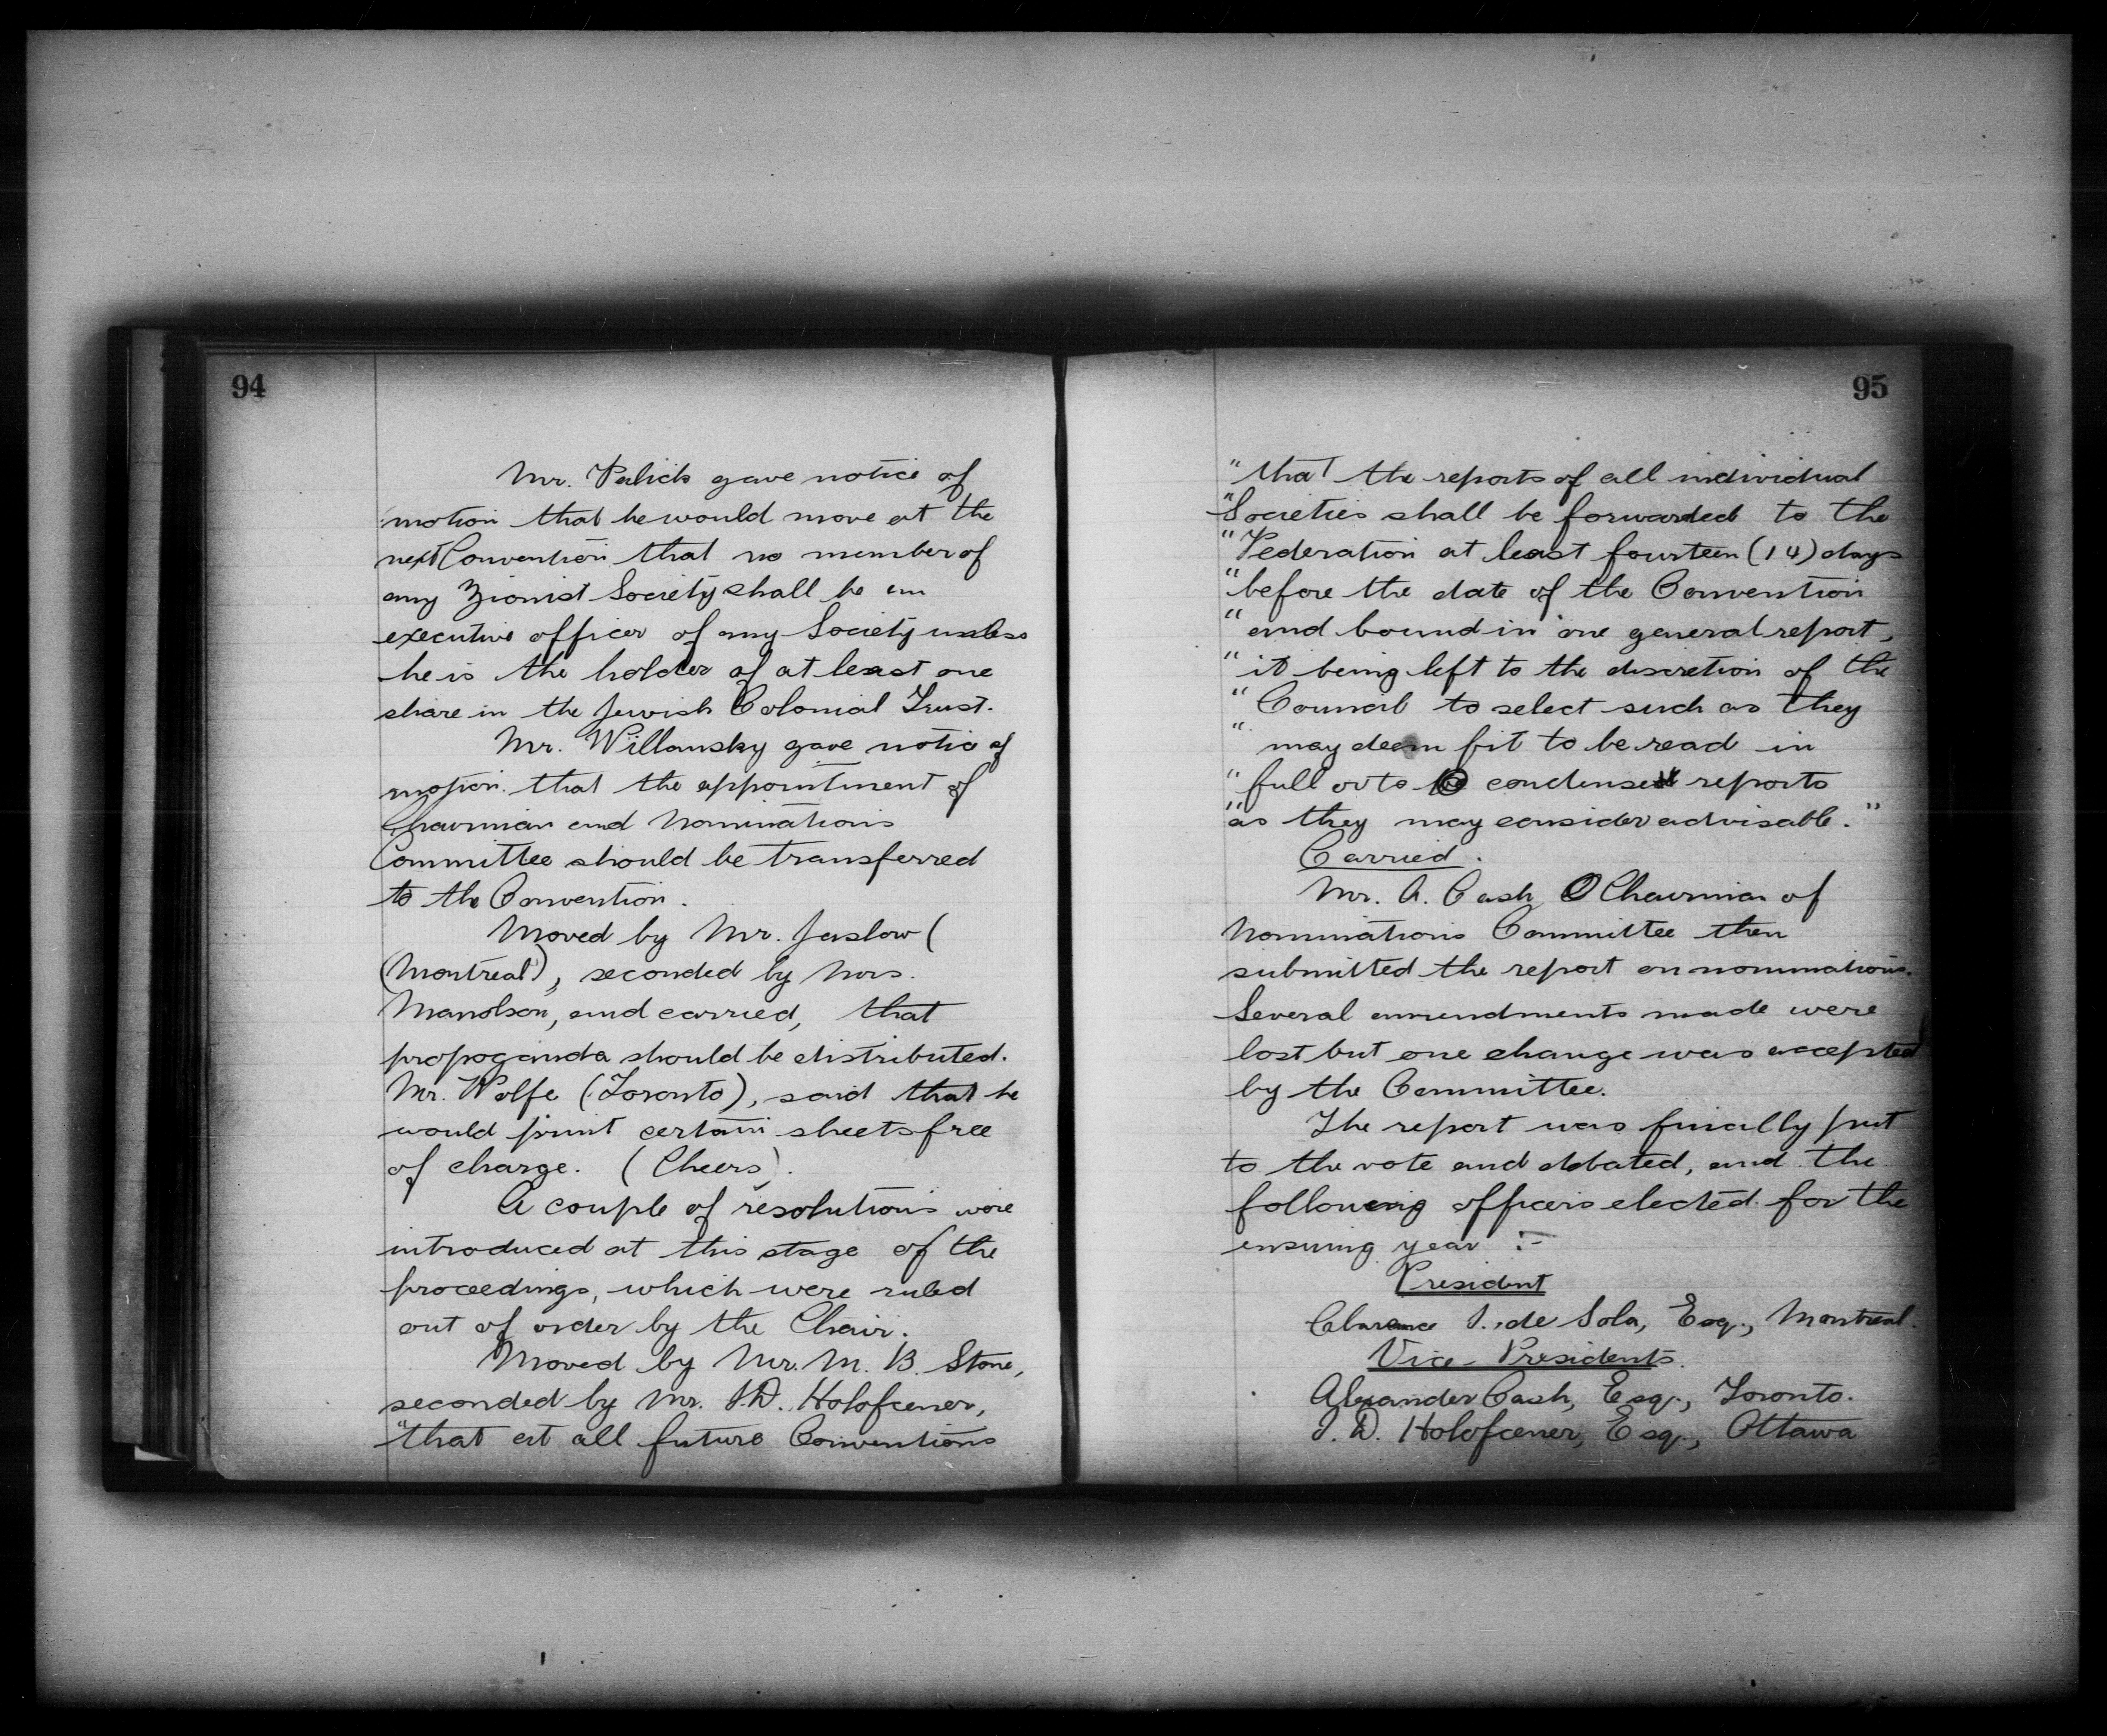 94
Mr. Palick gave notice of
motion that he would move at the
next Convention that no member of
any Zionist Society shall be an
executive officer of any Society unless
he is the holder of at least one
share in the Jewish Colonial Trust.
Mr. Willansky gave notice of
motion that the appointment of
Chairman and Nominations
Committee should be transferred
to the Convention.
Moved by Mr. Jaslow (
(Montreal), seconded by Mrs.
Manolson, and carried, that
propoganda should be distributed.
Mr. Wolfe (Toronto), said that he
would print certain sheets free
of charge. (Cheers).
A couple of resolutions were
introduced at this stage of the
proceedings, which were ruled
out of order by the Chair.
Moved by Mr. M. B. Stone,
seconded by Mr. I. D. Holofcener,
"that at all future Conventions
95
"that the reports of all individual
"Societies shall be forwarded to the
"Federation at least fourteen (14) days
"before the date of the Convention
"and bound in one general report,
"it being left to the discretion of the
"Council to select such as they
"may deem fit to be read in
"full or to condensed reports
"as they may consider advisable."
Carried.
Mr. A. Cash Chairman of
Nominations Committee then
submitted the report on nominations.
Several amendments made were
lost but one change was accepted
by the Committee.
The report was finally put
to the vote and debated, and the
following officers elected for the
ensuing year :-
President
Clarence I. de Sola, Esq., Montreal.
Vice-Presidents.
Alexander Cash, Esq., Toronto.
I. D. Holofcener, Esq., Ottawa